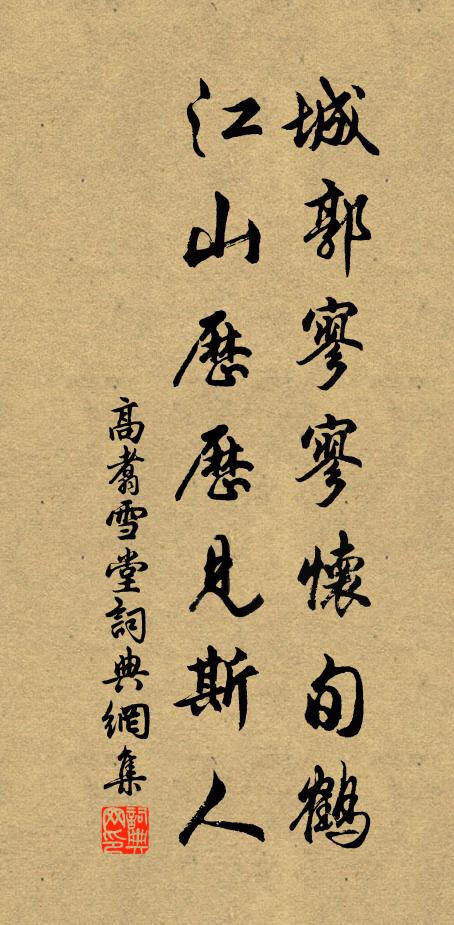 城郭寥寥懷旬鶴
江山歷歷見斯人
高翥雪堂詞典網集
詞典网印